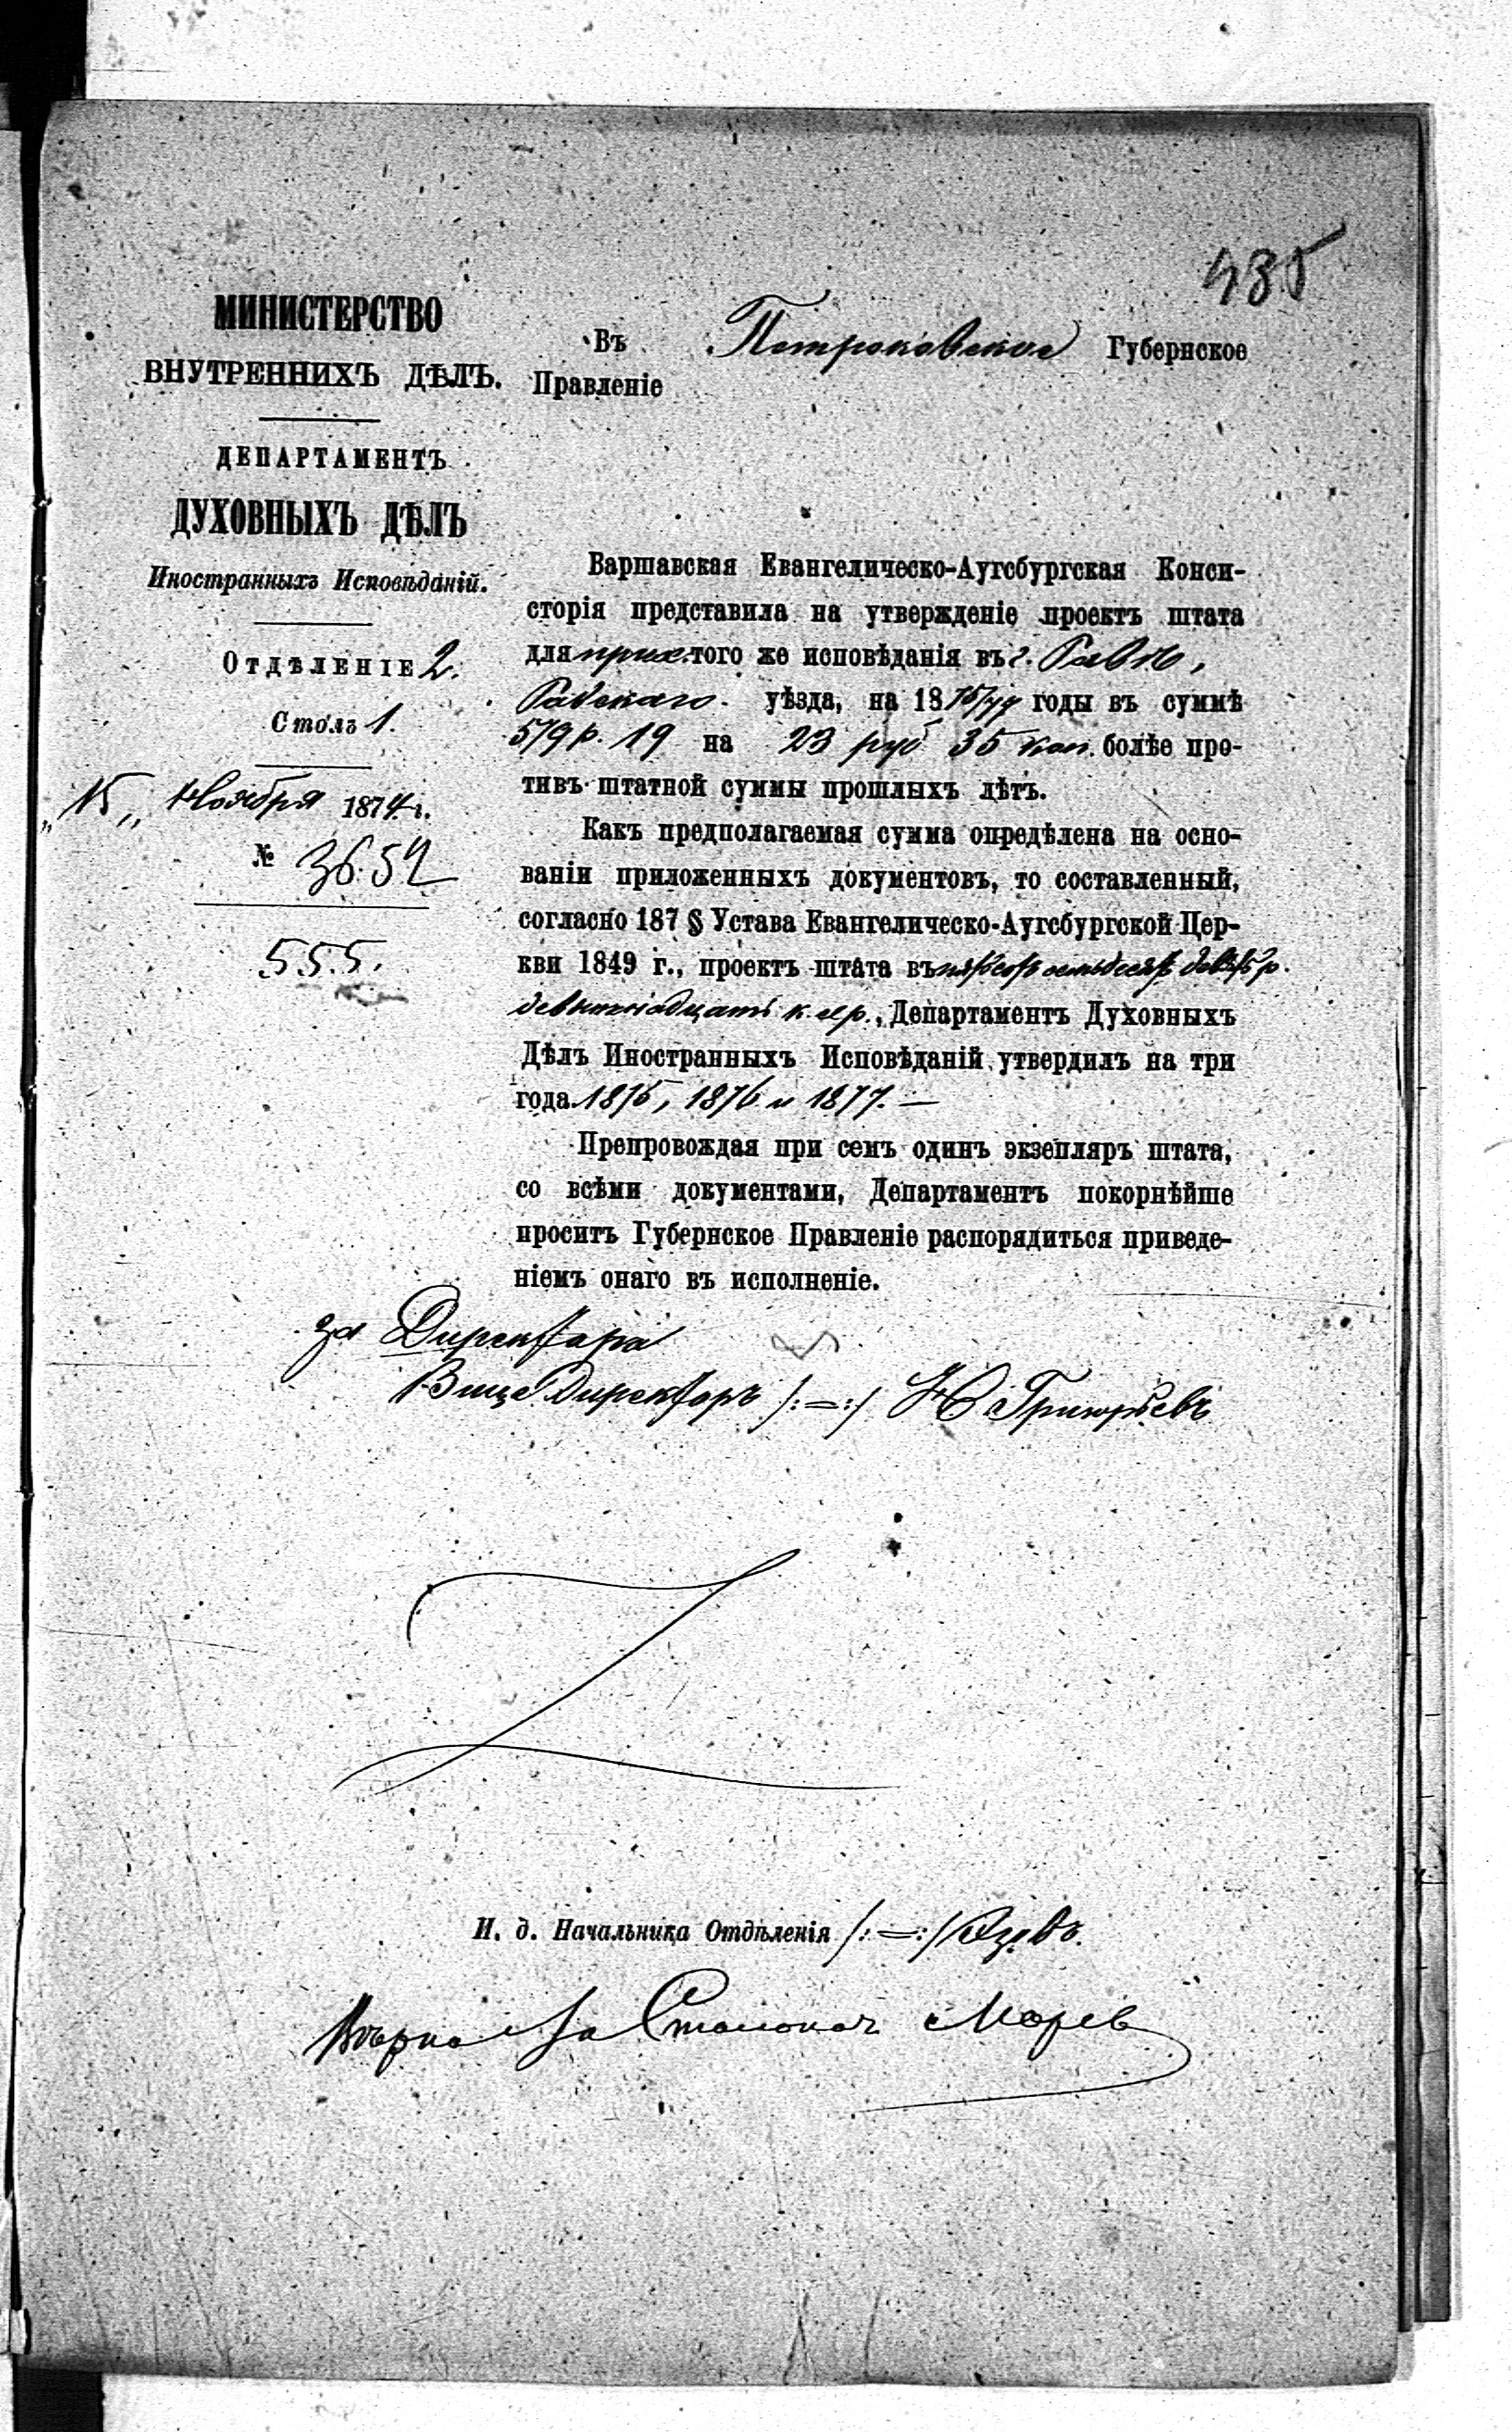 435
МИНИСТЕРСТВО
ВНУТРЕННИХЪ ДѢЛЪ.
ДЕПАРТАМЕНТЪ
ДУХОВНЫХЪ ДѢЛЪ
Иностранныхъ Исповѣданій.
Отдѣленіе 2.
Столъ 1.
„15„ Ноября 1874 г.
№ 3652
555.
Въ Петроковское Губернское
Правленіе
Варшавская Евангелическо-Аугсбургская Конси-
сторія представила на утвержденіе проектъ штата
для прих. того же исповѣданія въ г. Равѣ,
Равскаго уѣзда, на 1875/77 годы въ суммѣ
579 р. 19 на 23 руб 35 коп. болѣе про-
тивъ штатной суммы прошлыхъ лѣтъ.
Какъ предполагаемая сумма опредѣлена на осно-
ваніи приложенныхъ документовъ, то составленный,
согласно 187 § Устава Евангелическо-Аугсбургской Цер-
кви 1849 г., проектъ штата въ пятьсотъ семьдесятъ девять р.
девятнадцать к. сер., Департаментъ Духовныхъ
Дѣлъ Иностранныхъ Исповѣданій утвердилъ на три
года 1875, 1876 и 1877. —
Препровождая при семъ одинъ экзепляръ штата,
со всѣми документами, Департаментъ покорнѣйше
проситъ Губернское Правленіе распорядиться приведе-
ніемъ онаго въ исполненіе.
За Директора
Вице Директоръ /:=:/ Григорьевъ
И. д. Начальника Отдѣленія /:=:/
Вѣрно За Столонач.